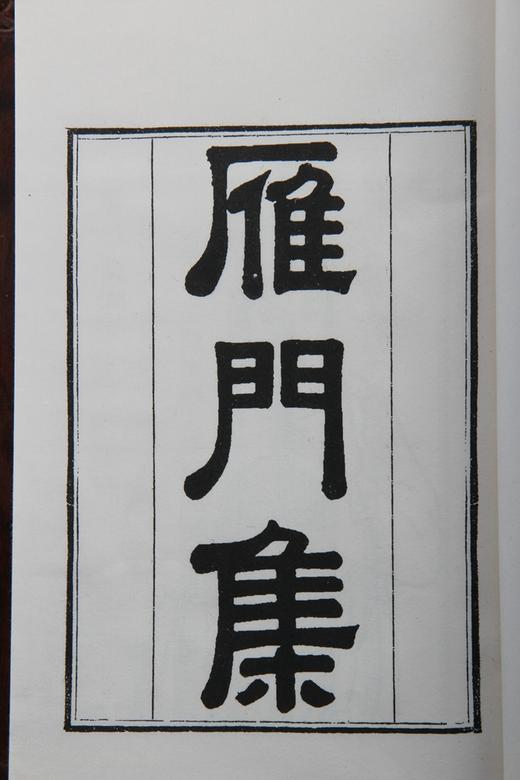 雁門集